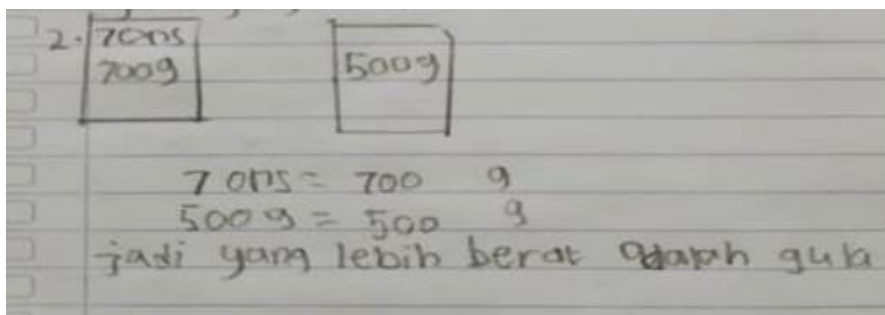 2. 7 ons
700 g
500 g
7 ons = 700 g
500 g = 500 g
jadi yang lebih berat adalah gula